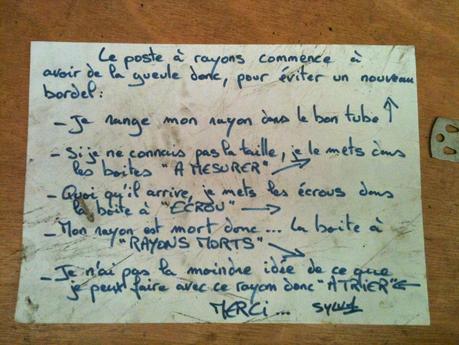 Le poste à rayons commence à
avoir de la gueule donc, pour éviter un nouveau
bordel :
- Je range mon rayon dans le bon tube ↑
- Si je ne connais pas la taille, je le mets dans
les boites "A MESURER" →
- Quoi qu'il arrive, je mets les écrous dans
la boite à "ECROU" →
- Mon rayon est mort donc... la boite à
"RAYONS MORTS" →
- Je n'ai pas la moindre idée de ce que
je peux faire avec ce rayon donc "A TRIER" ←
MERCI...